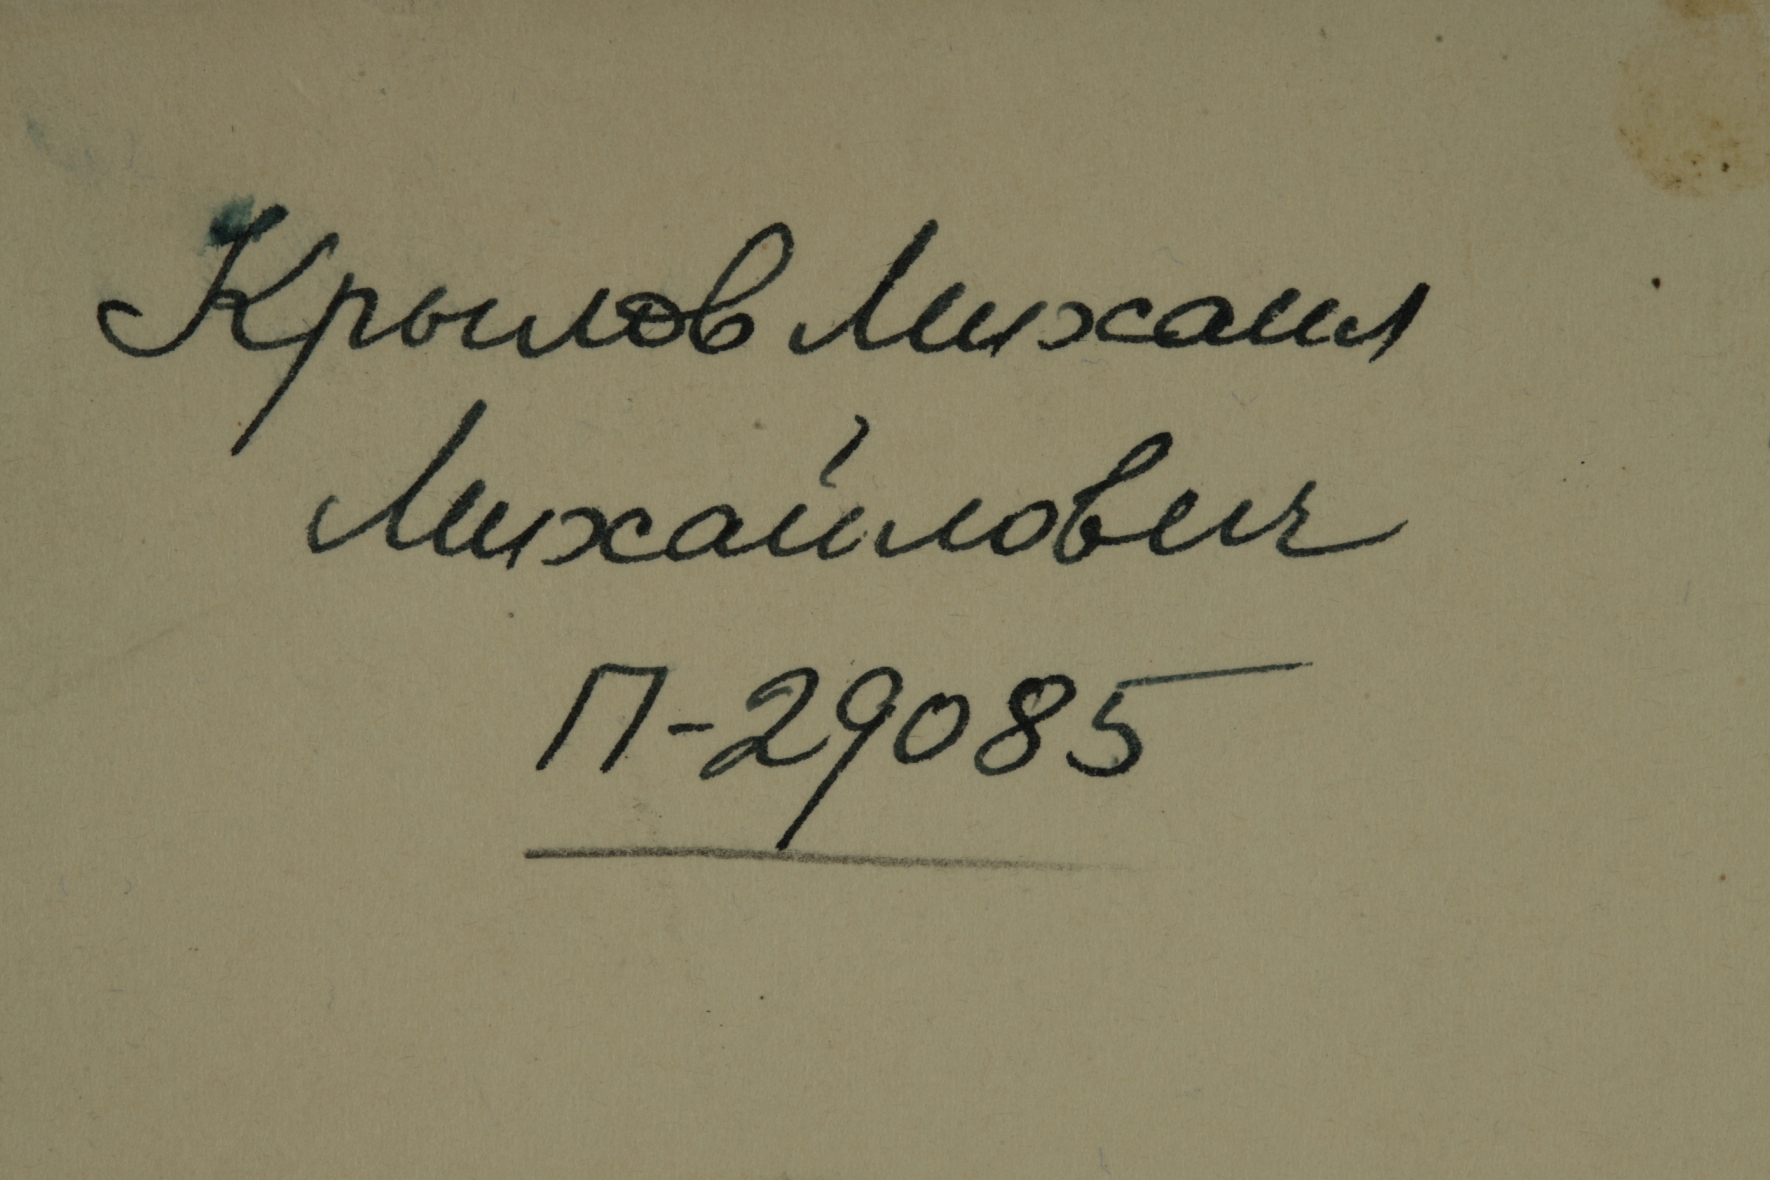 Крылов Михаил
Михайлович
П-29085